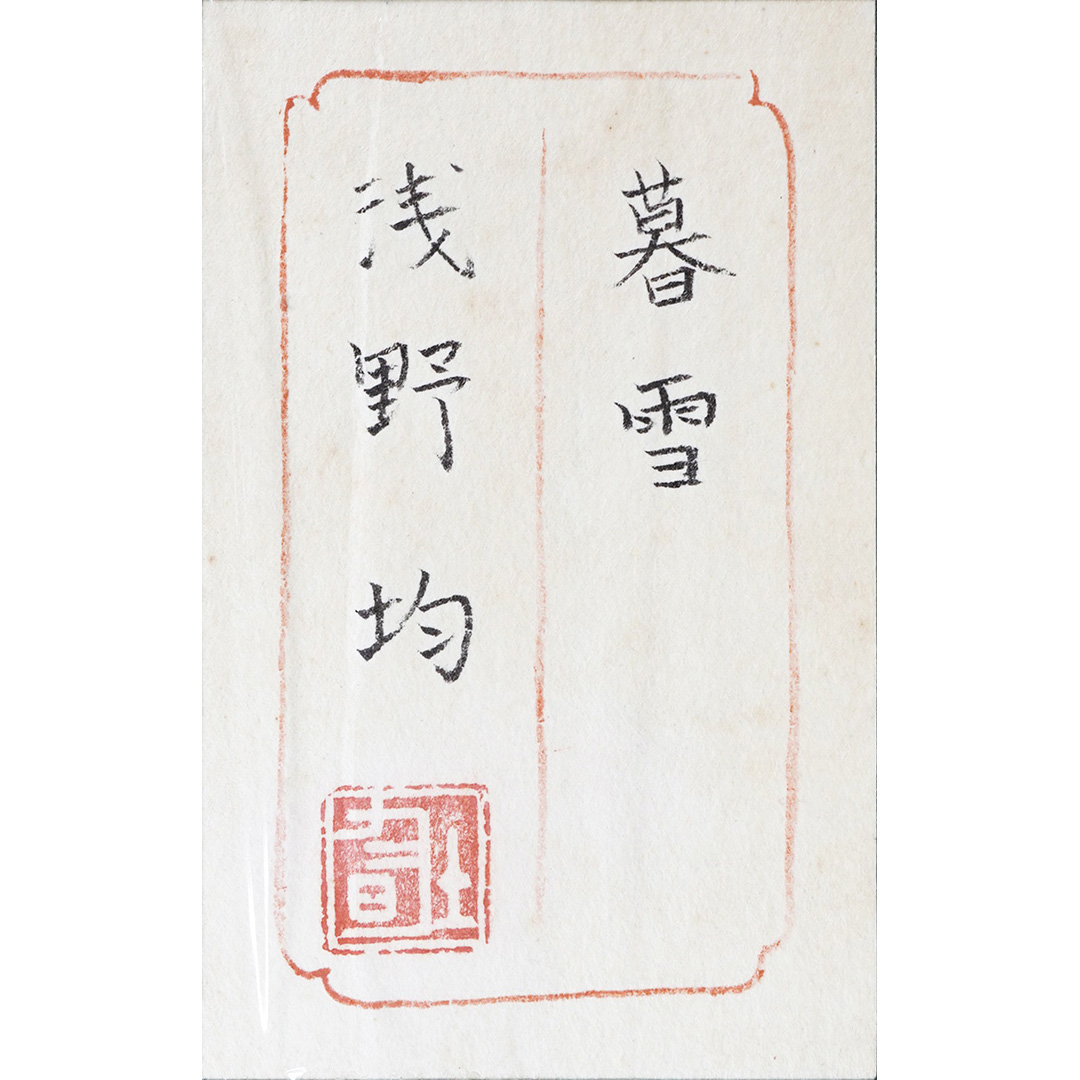 暮雪
浅野均